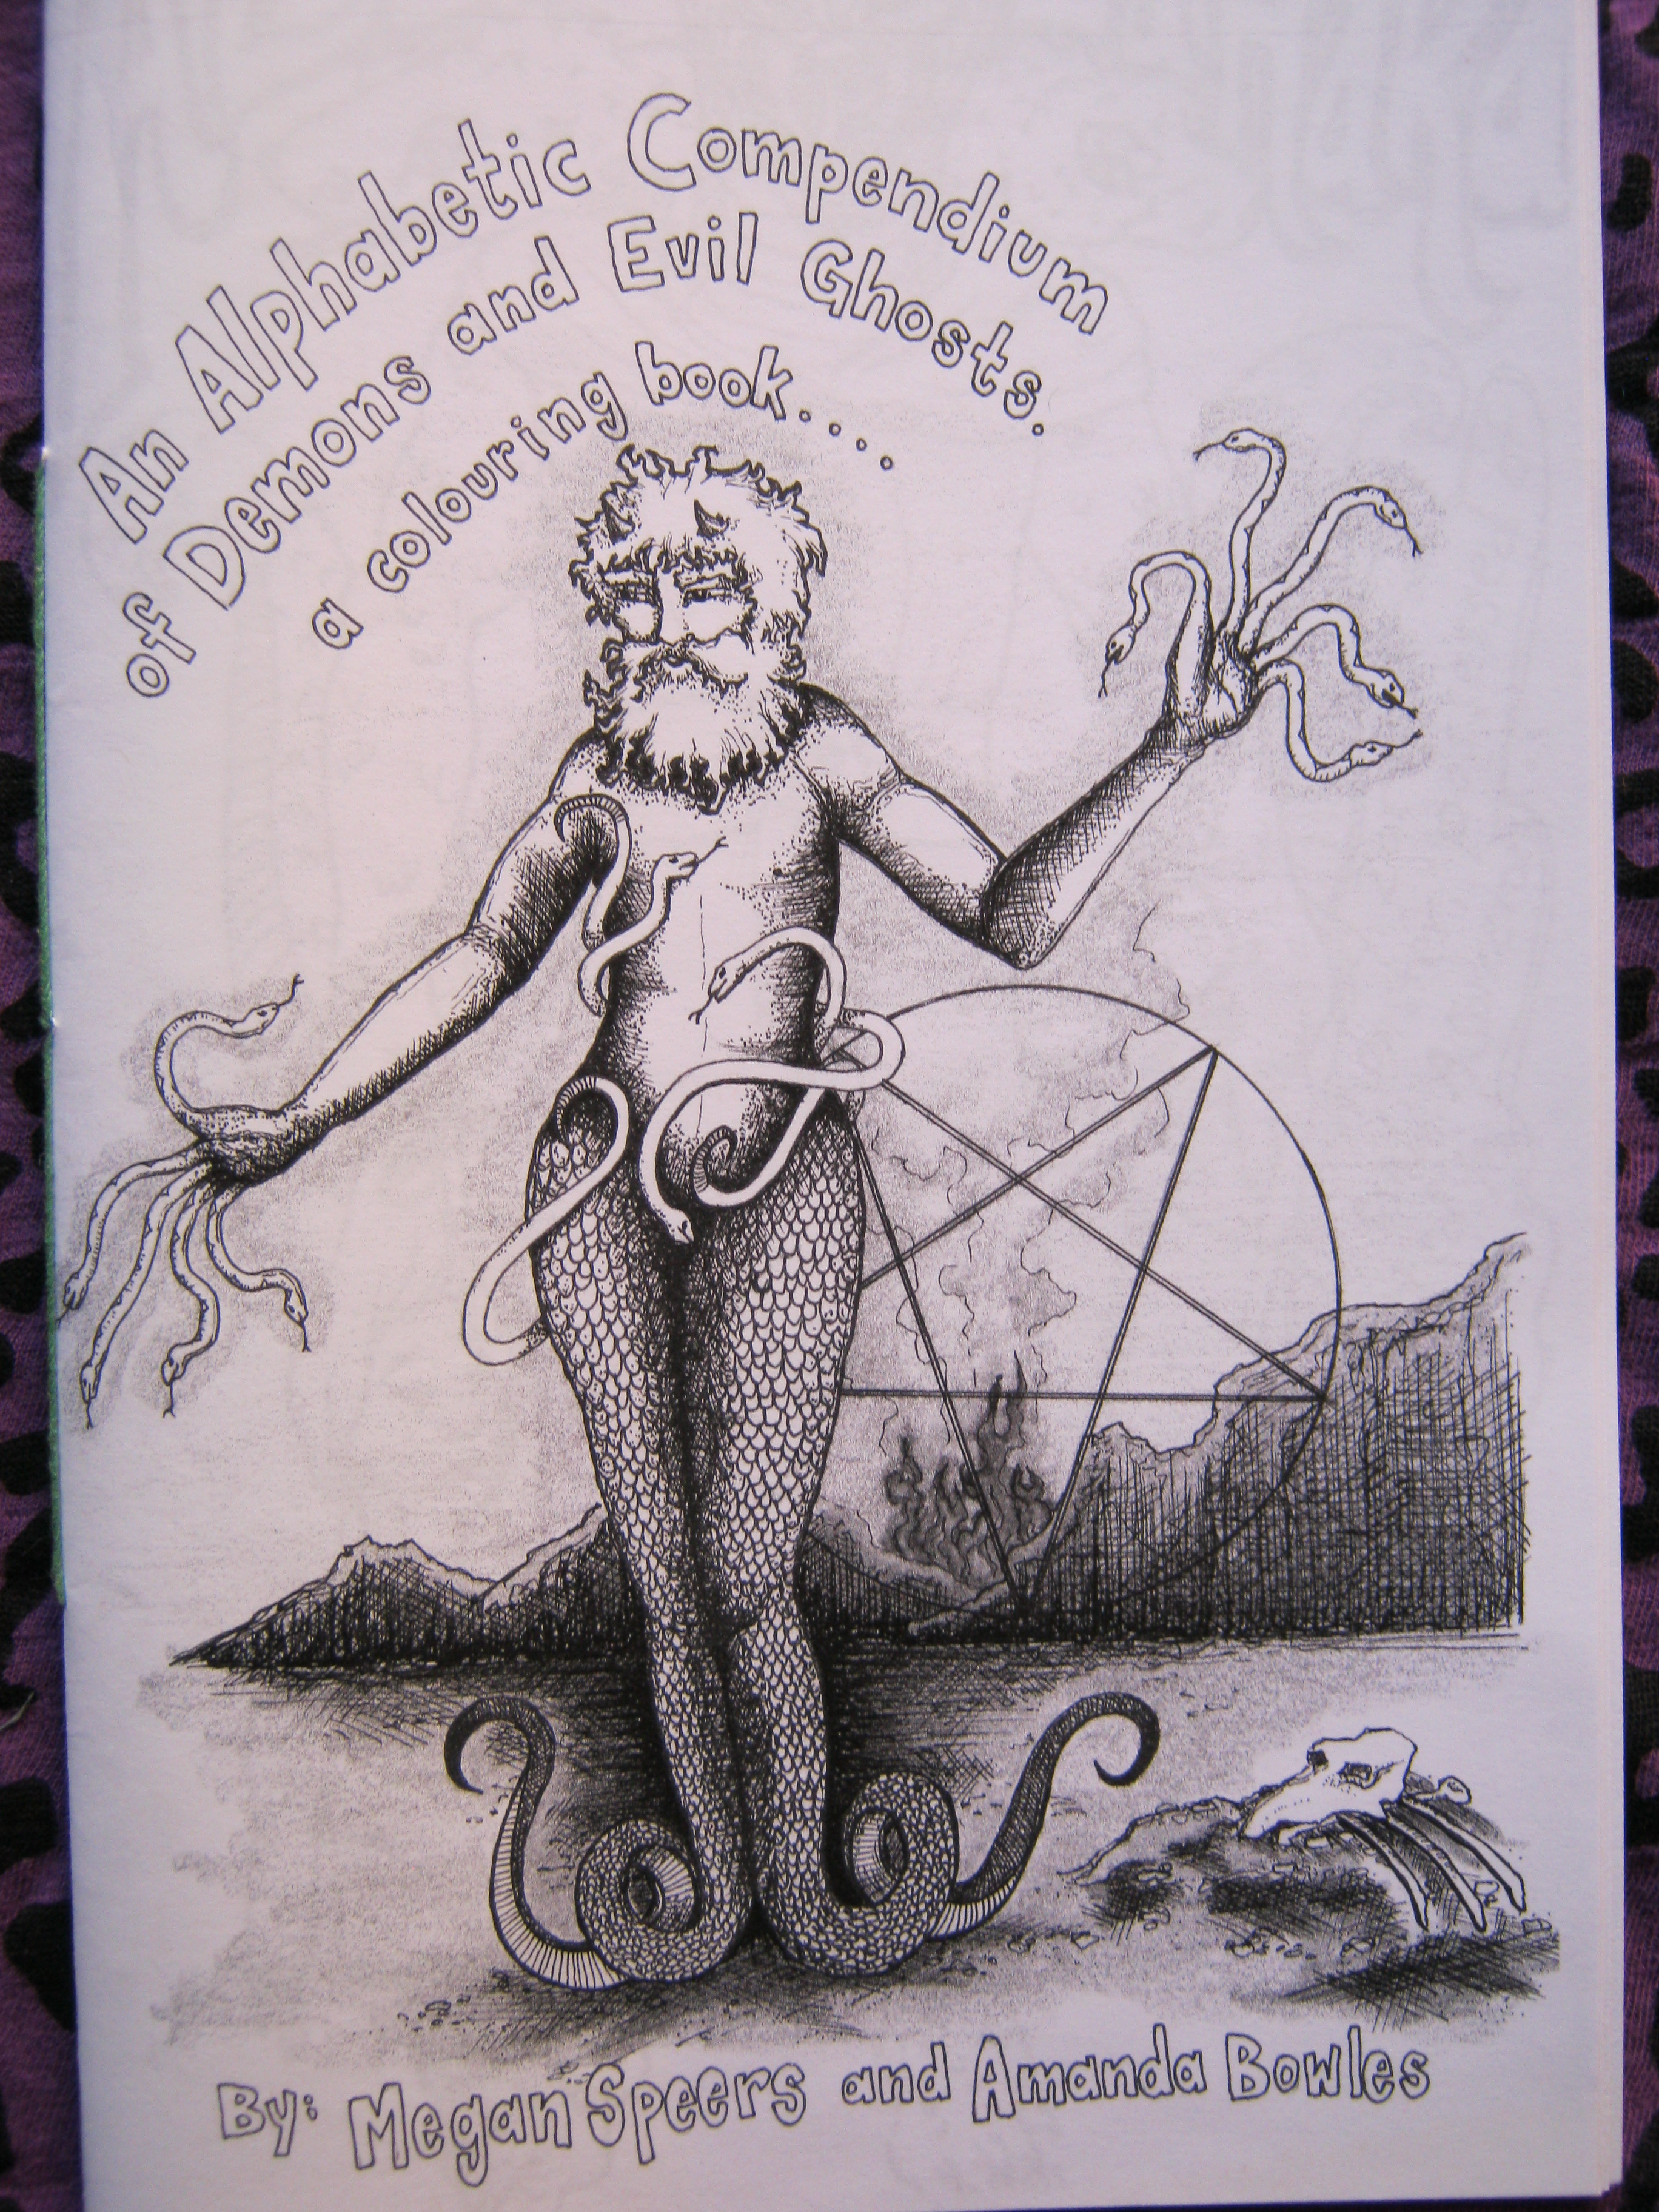 An Alphabetic Compendium
of Demons and Evil Ghosts.
a colouring book....
By: Megan Speers and Amanda Bowles